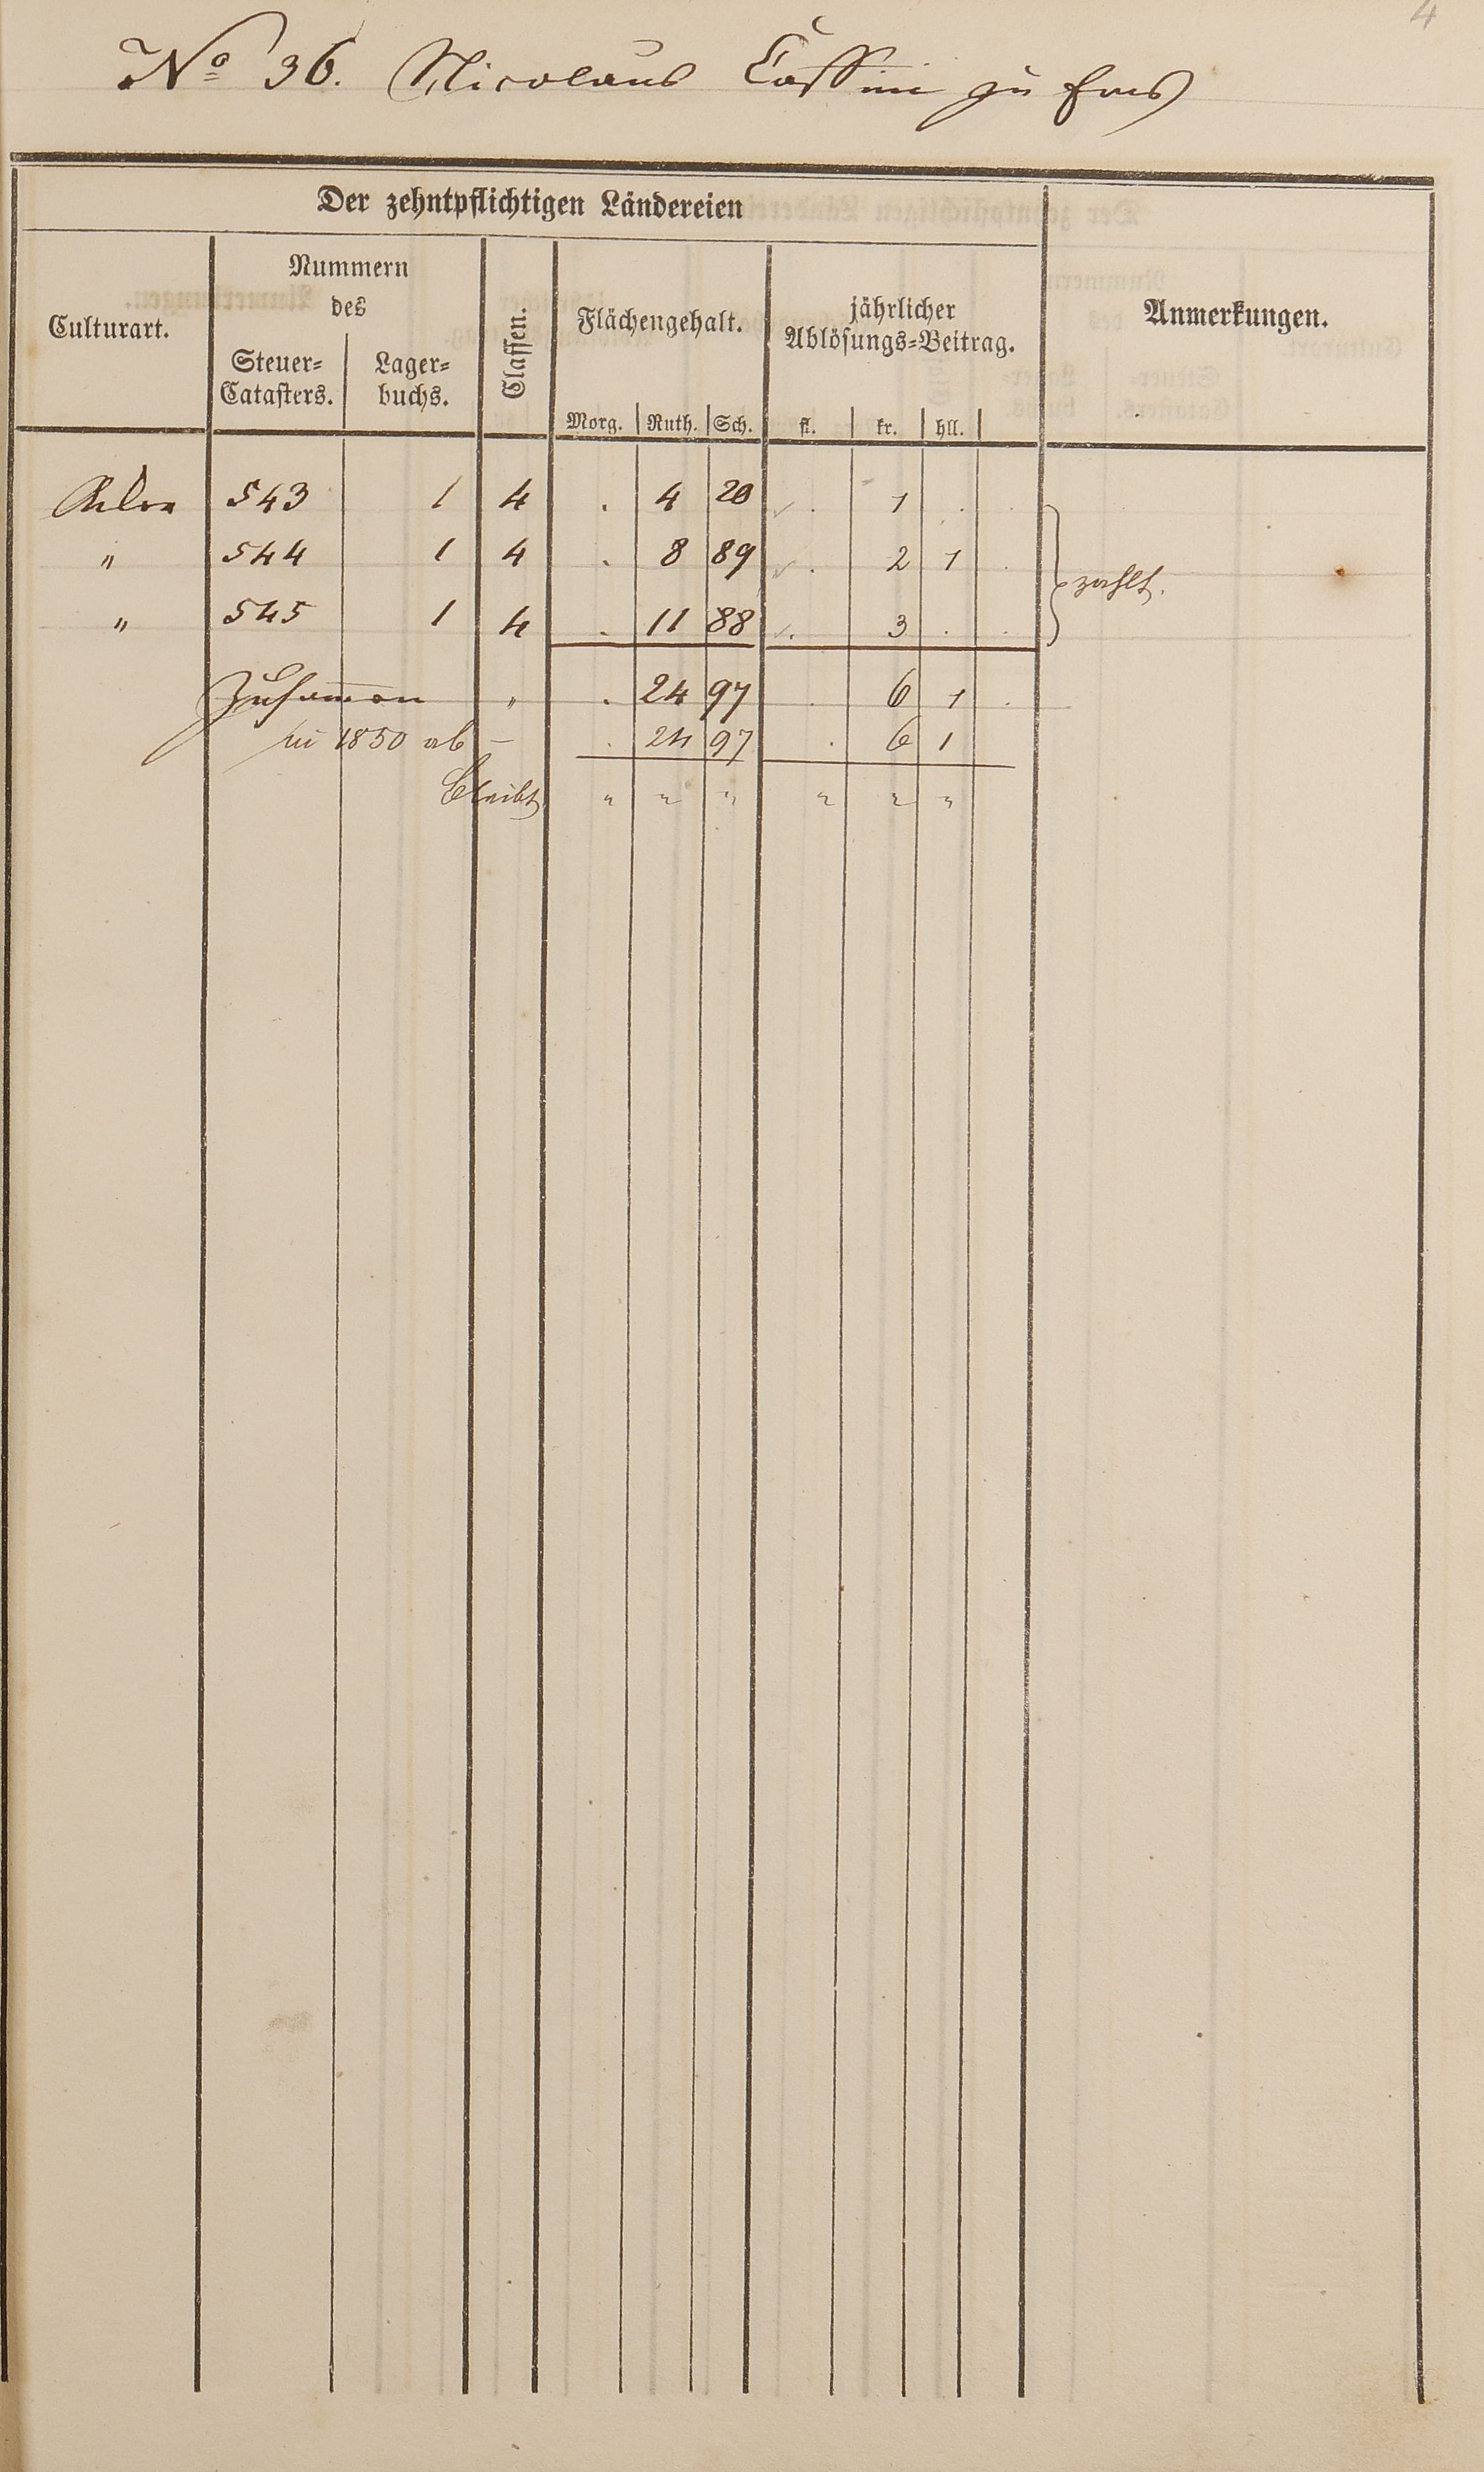 4
No 36. Nicolaus Cassini zu Ems
Der zehntpflichtigen Ländereien
Culturart.
Nummern
des
Steuer=
Catasters.
Lager=
buchs.
Classen.
Flächengehalt.
Morg. Ruth. Sch.
jährlicher
Ablösungs=Beitrag.
fl. kr. hll.
Anmerkungen.
543 1 4 . 4 20 . 1 . .
" 544 1 4 . 8 89 . 2 1 .
" 545 1 4 . 11 88 . 3 . .
zahlt.
Zusammen " . 24 97 . 6 1 .
in 1850 ab – . 24 97 . 6 1
bleibt " " " " " "